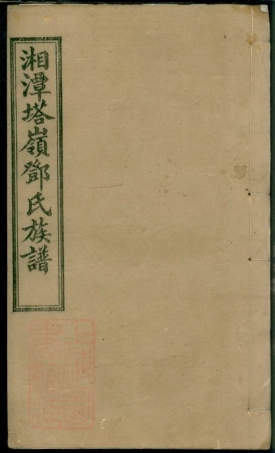 湘潭塔嶺鄧氏族譜